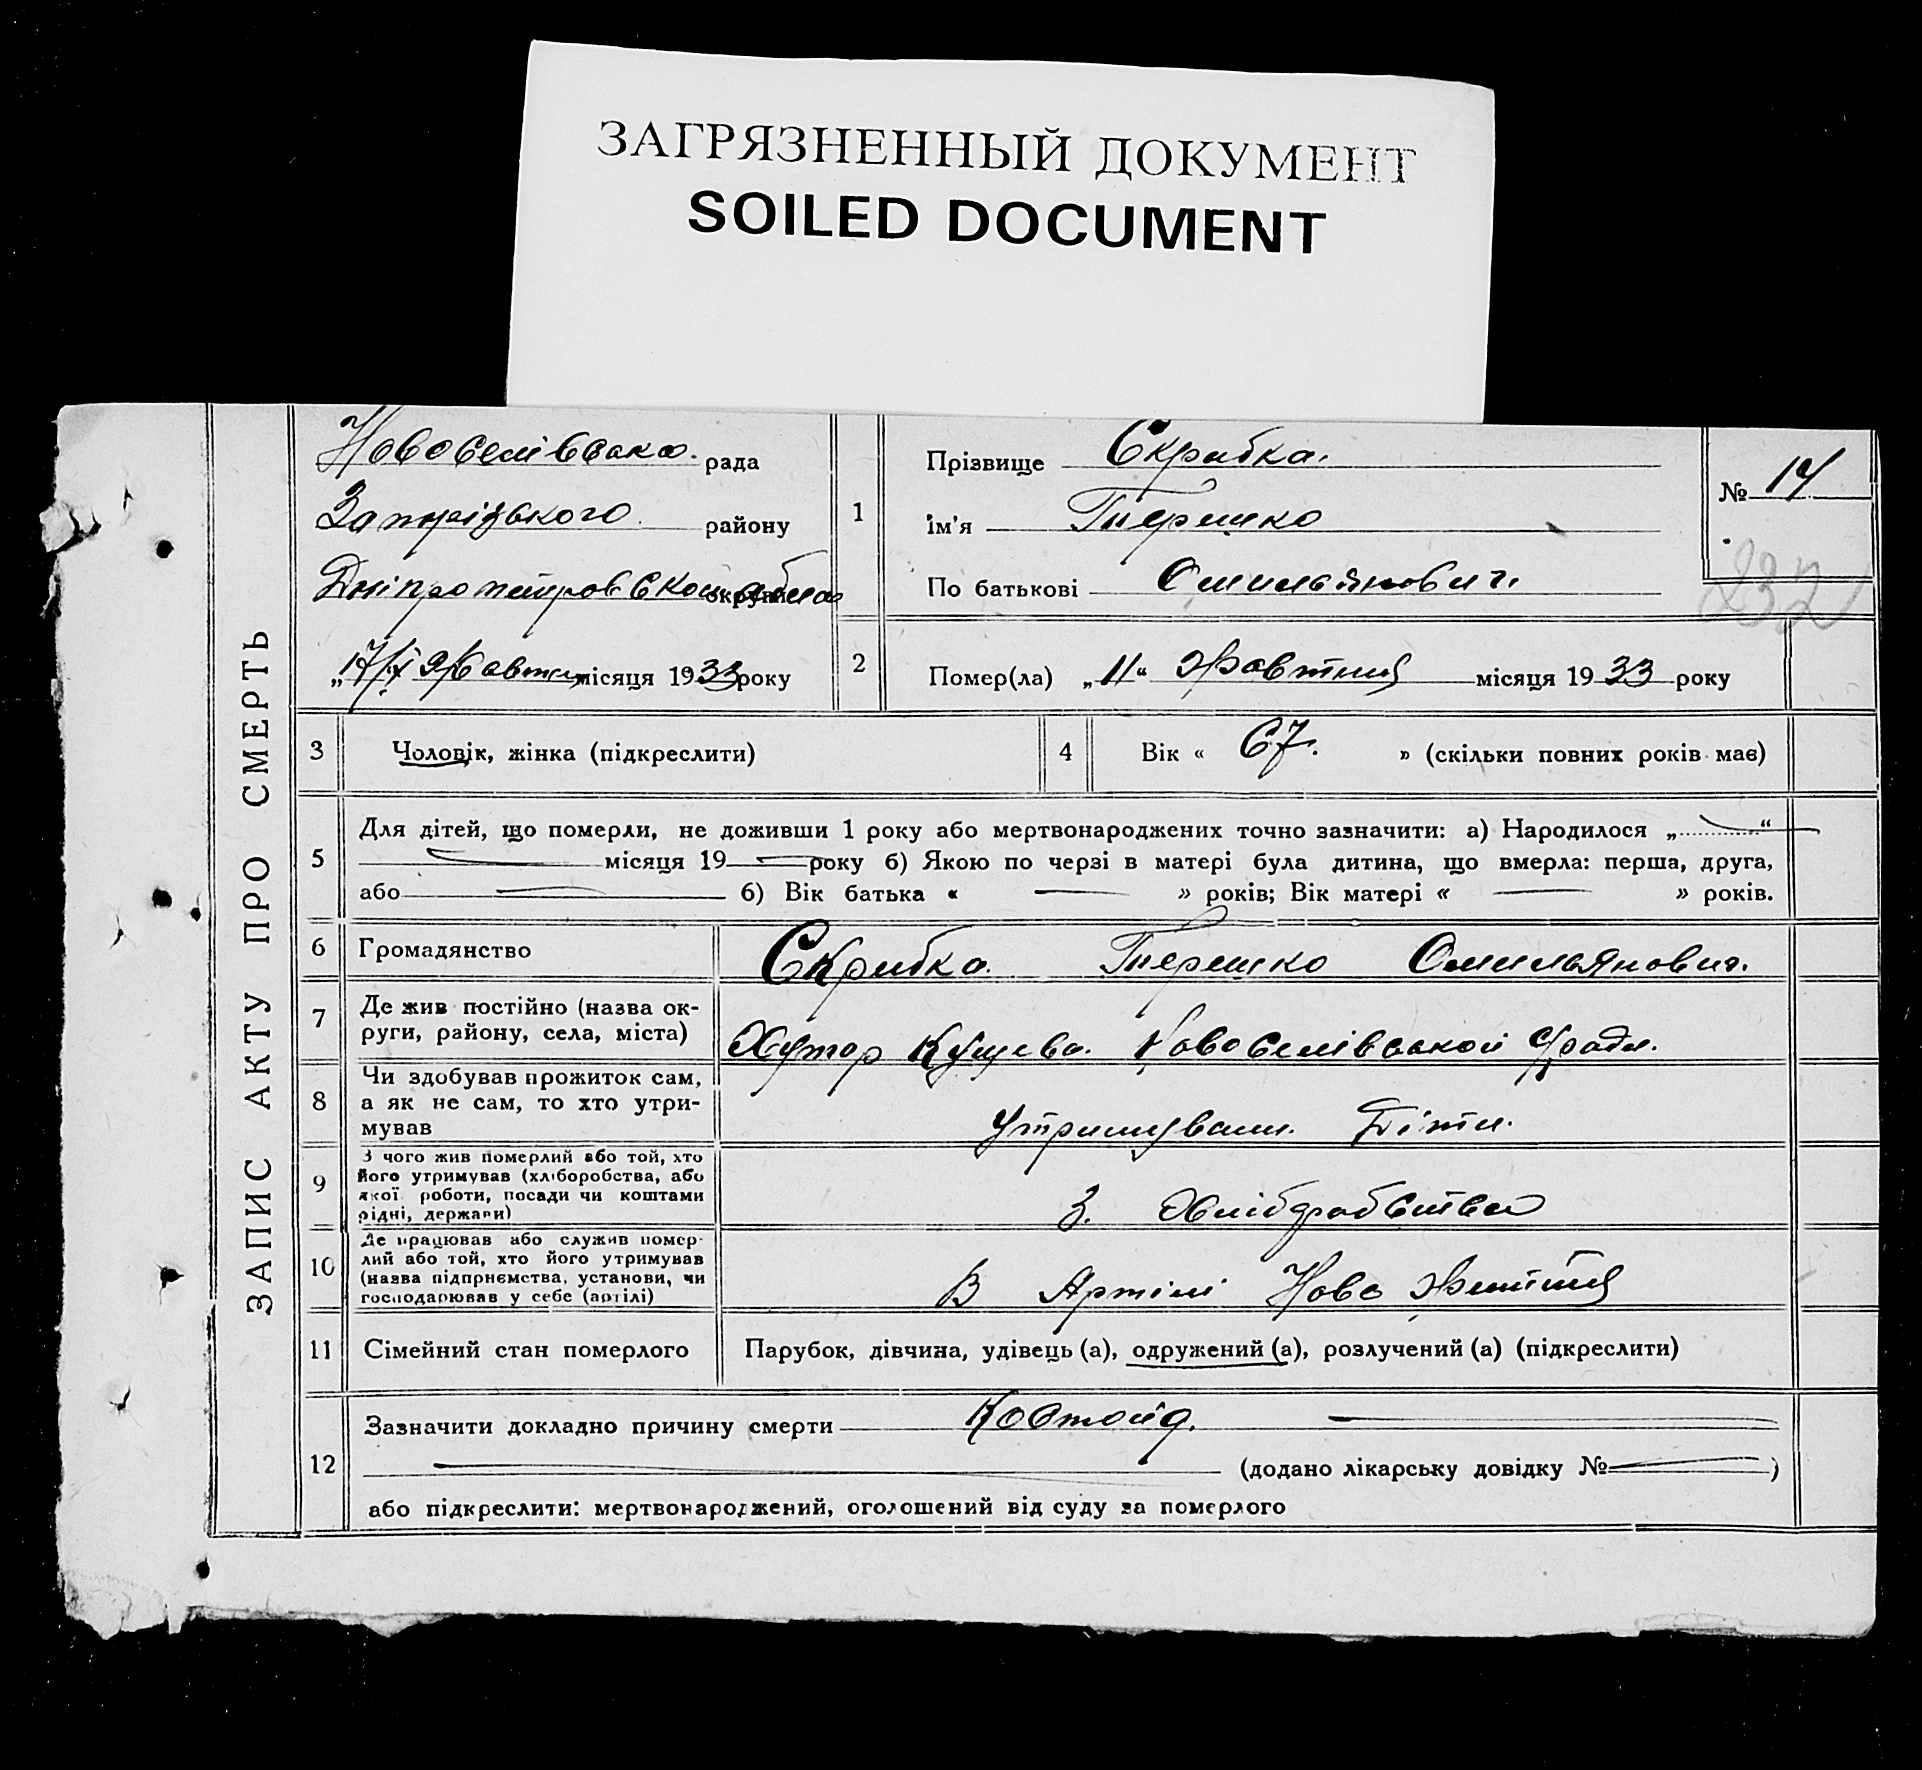 ЗАГРЯЗНЕННЫЙ ДОКУМЕНТ
SOILED DOCUMENT
ЗАПИС АКТУ ПРО СМЕРТЬ
Новоселівська рада
Запорізького району
Дніпропетровської області округи
„17/X Жовтня місяця 1933 року
1
Прізвище Скрибка.
Ім'я Терешко
По батькові Омильянович.
№ 14
232
2
Помер(ла) „11“ Жовтня місяця 1933 року
3 Чоловік, жінка (підкреслити)
4 Вік « 67. » (скільки повних років має)
5 Для дітей, що померли, не доживши 1 року або мертвонароджених точно зазначити: а) Народилося „ “
місяця 19 року б) Якою по черзі в матері була дитина, що вмерла: перша, друга,
або б) Вік батька « » років; Вік матері « » років.
6 Громадянство Скрибка Терешко Омильянович.
7 Де жив постійно (назва ок-
руги, району, села, міста) Хутор Кущева. Новоселівської С/ради.
8 Чи здобував прожиток сам,
а як не сам, то хто утри-
мував Утримували Діти.
9 З чого жив померлий або той, хто
його утримував (хліборобства, або
якої роботи, посади чи коштами
рідні, держави) З. Хліборобства
10 Де працював або служив помер-
лий або той, хто його утримував
(назва підприємства, установи, чи
господарював у себе (артілі) В Артілі Нове Життя
11 Сімейний стан померлого Парубок, дівчина, удівець (а), одружений (а), розлучений (а) (підкреслити)
12 Зазначити докладно причину смерти Костоїд.
(додано лікарську довідку № )
або підкреслити: мертвонароджений, оголошений від суду за померлого